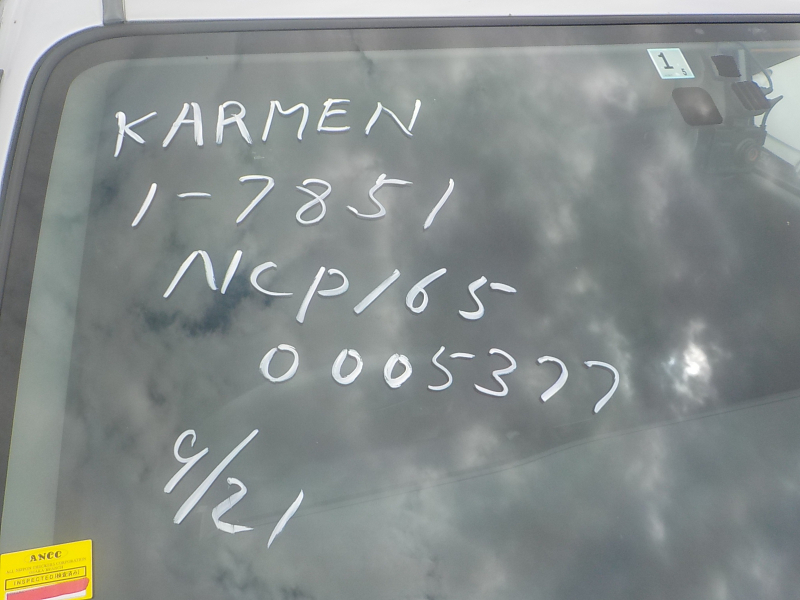 1
5
KARMEN
1-7851
NCP165
0005377
9/21
ANCC
INSPECTED